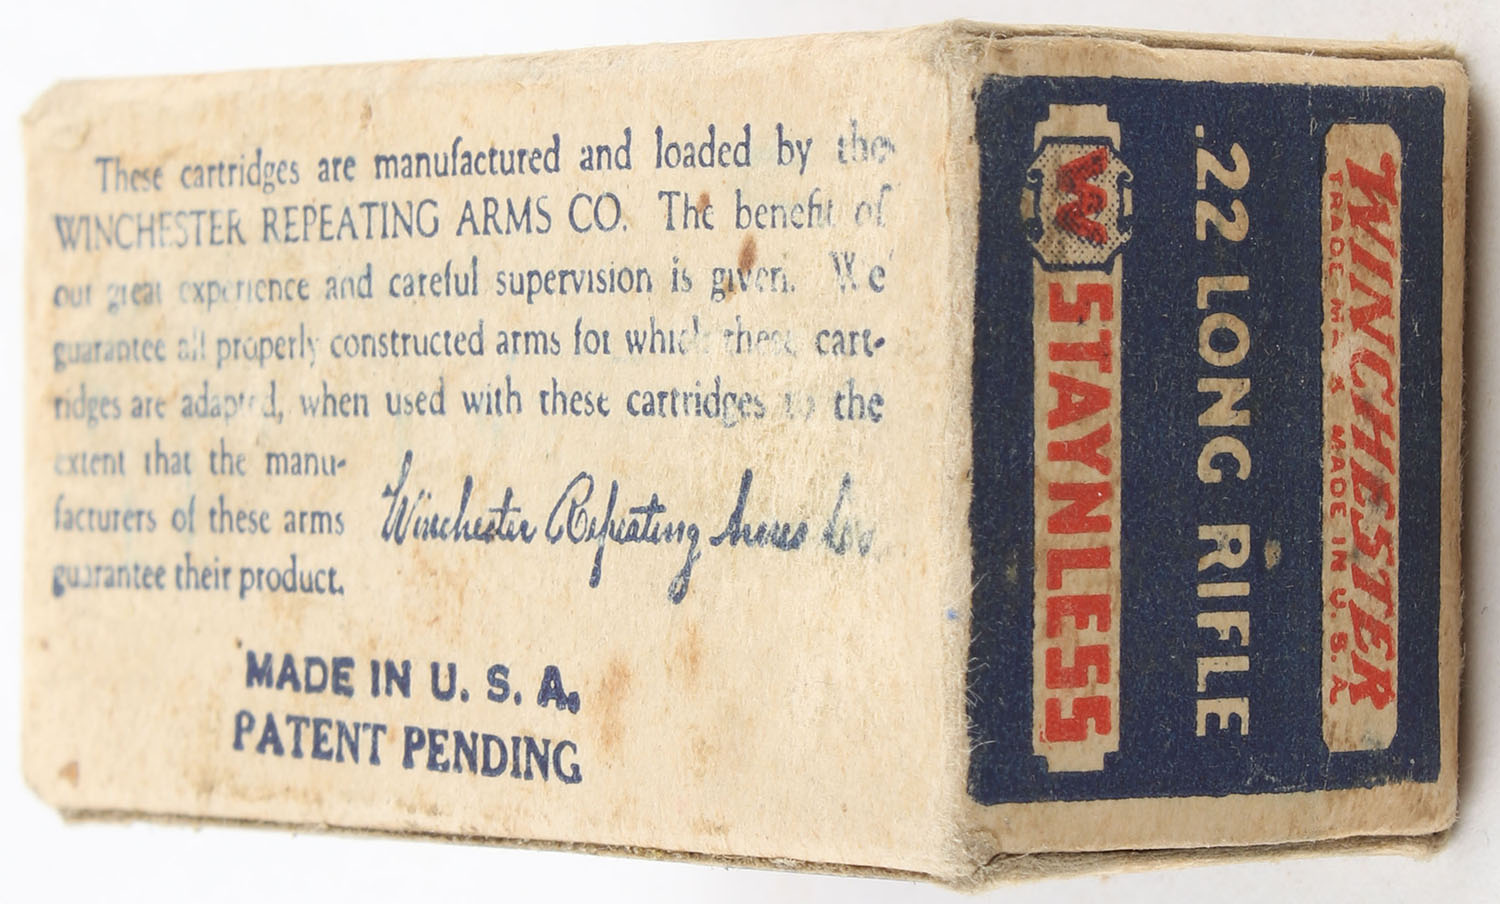 These cartridges are manufactured and loaded by the
WINCHESTER REPEATING ARMS CO. The benefit of
our great experience and careful supervision is given. We
guarantee all properly constructed arms for which these cart-
ridges are adapted, when used with these cartridges to the
extent that the manu-
facturers of these arms
guarantee their product.
Winchester Repeating Arms Co.
MADE IN U. S. A.
PATENT PENDING
WINCHESTER
TRADE MARK MADE IN U.S.A.
.22 LONG RIFLE
W STAYNLESS